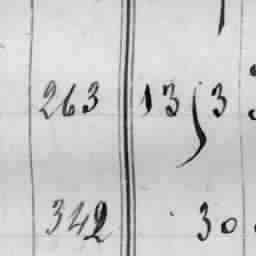 263 13 3
342 30